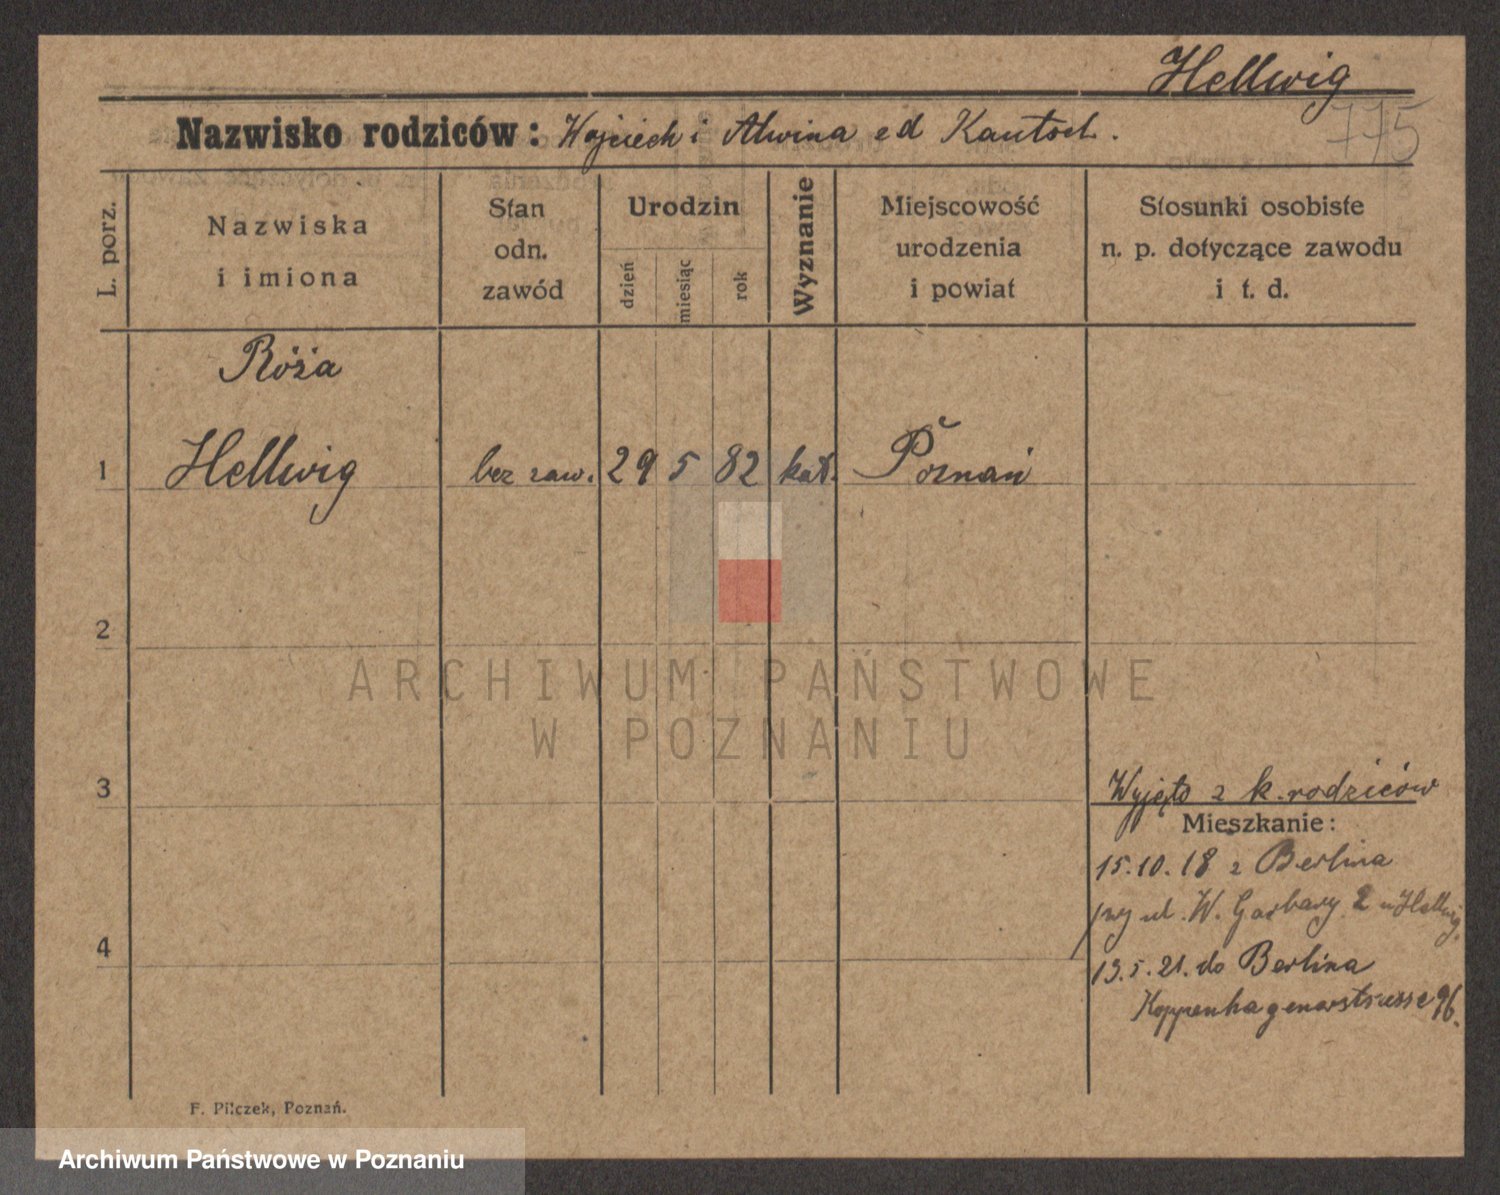 Hellwig
775
Nazwisko rodziców: Wojciech i Alwina ed Kantsch.
L. porz.
Nazwiska
i imiona
Stan
odn.
zawód
Urodzin
dzień
miesiąc
rok
Wyznanie
Miejscowość
urodzenia
i powiat
Stosunki osobiste
n. p. dotyczące zawodu
i t. d.
Róża
1 Hellwig bez zaw. 29 5 82 kat. Poznań
2
ARCHIWUM PAŃSTWOWE
W POZNANIU
3
Wyjęto z k. rodziców
Mieszkanie:
15.10.18 z Berlina
przy ul. W. Garbary 2 u Hellwig
4
13.5.21. do Berlina
Koppenhagenerstrasse 96.
F. Pilczek, Poznań.
Archiwum Państwowe w Poznaniu